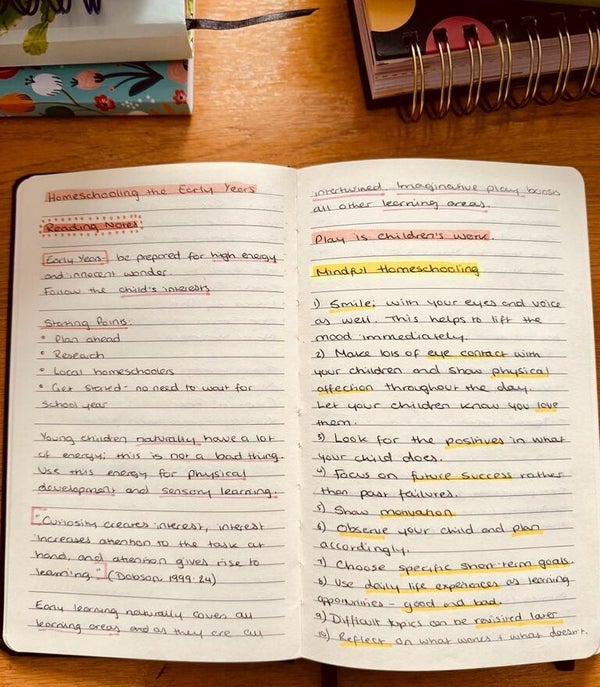 Homeschooling the Early Years
Reading Notes
Early Years: be prepared for high energy
and innocent wonder.
Follow the child's interests
Starting Points:
• Plan ahead
• Research
• Local homeschoolers
• Get started - no need to wait for
school year
Young children naturally have a lot
of energy; this is not a bad thing.
Use this energy for physical
development and sensory learning.
"Curiosity creates interest, interest
increases attention to the task at
hand, and attention gives rise to
learning." (Dobson, 1999: 24)
Early learning naturally covers all
learning areas and as they are all
intertwined. Imaginative play boosts
all other learning areas.
Play is children's work.
Mindful Homeschooling
1) Smile; with your eyes and voice
as well. This helps to lift the
mood immediately.
2) Make lots of eye contact with
your children and show physical
affection throughout the day.
Let your children know you love
them.
3) Look for the positives in what
your child does.
4) Focus on future success rather
than past failures.
5) Show motivation.
6) Observe your child and plan
accordingly.
7) Choose specific short-term goals.
8) Use daily life experiences as learning
opportunities - good and bad.
9) Difficult topics can be revisited later
10) Reflect on what works + what doesn't.